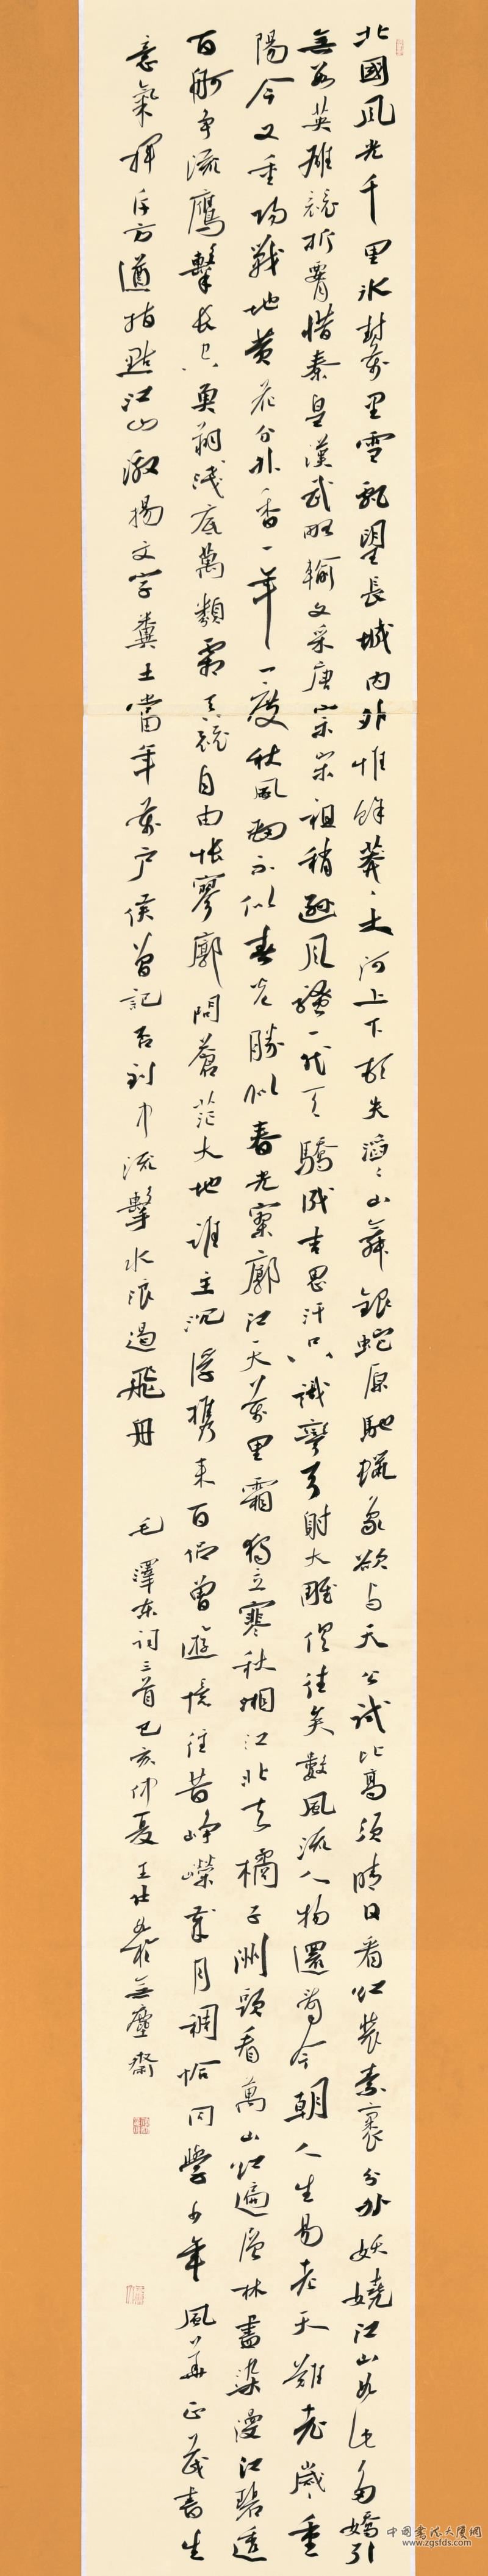 北國風光千里冰封萬里雪飄望長城內外惟餘莽〻大河上下頓失滔〻山舞銀蛇原馳蠟象欲與天公試比高須晴日看紅裝素裹分外妖嬈江山如此多嬌引
無數英雄競折腰惜秦皇漢武略輸文采唐宗宋祖稍遜風騷一代天驕成吉思汗只識彎弓射大雕俱往矣數風流人物還看今朝人生易老天難老歲〻重
陽今又重陽戰地黃花分外香一年一度秋風勁不似春光勝似春光寥廓江天萬里霜獨立寒秋湘江北去橘子洲頭看萬山紅遍層林盡染漫江碧透
百舸爭流鷹擊長空魚翔淺底萬類霜天競自由悵寥廓問蒼茫大地誰主沉浮攜來百侶曾遊憶往昔崢嶸歲月稠恰同學少年風華正茂書生
意氣揮斥方遒指點江山激揚文字糞土當年萬戶侯曾記否到中流擊水浪遏飛舟 毛澤東詞三首己亥仲夏王仕 於無塵齋
中国书法大厦网
www.zgsfds.com